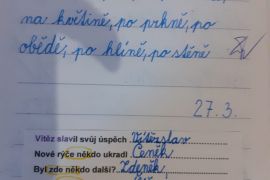 na květině, po prkně, po
obědě, po klíně, po stěně
27.3.
Vítěz slavil svůj úspěch. Vítězslav
Nové rýče někdo ukradl. Čeněk
Byl zde někdo další? Zdeněk